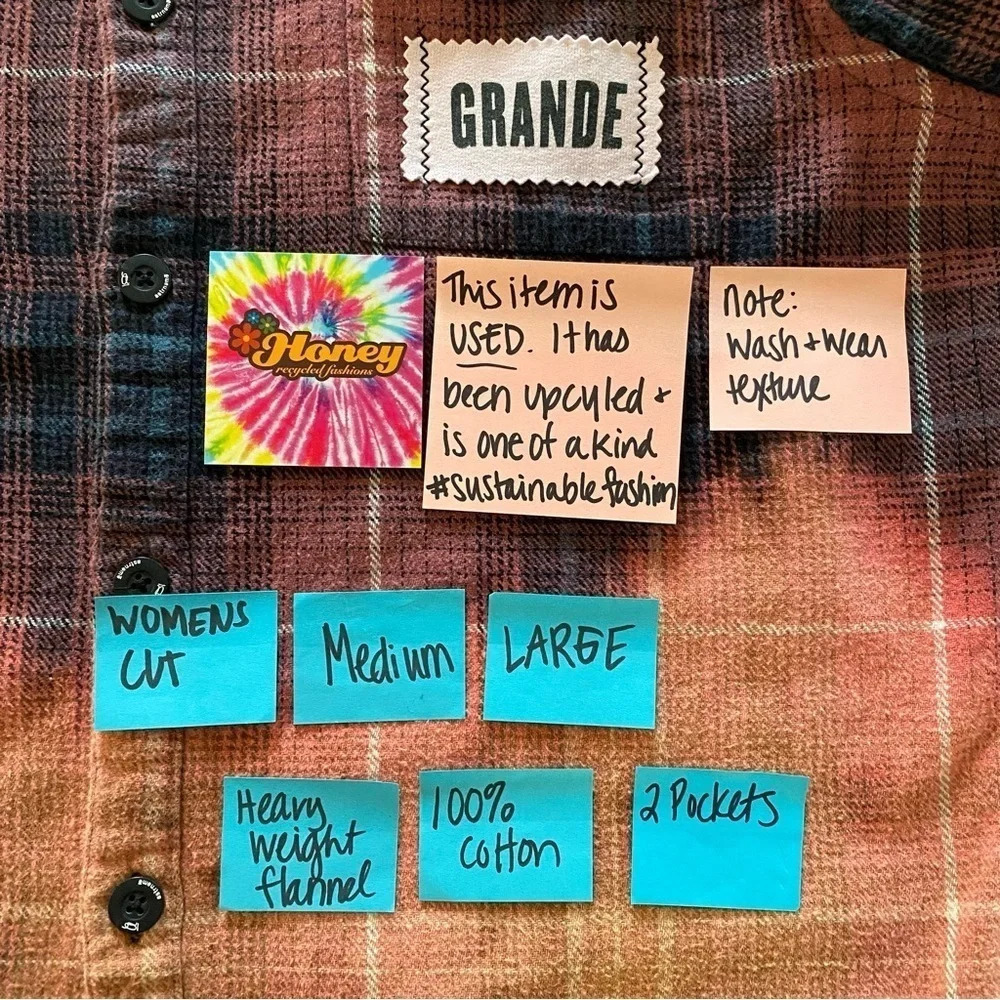 GRANDE
Honey
recycled fashions
This item is
USED. It has
been upcyled +
is one of a kind
#sustainablefashion
note:
wash + wear
texture
WOMENS
CUT
Medium
LARGE
Heavy
weight
flannel
100%
cotton
2 Pockets